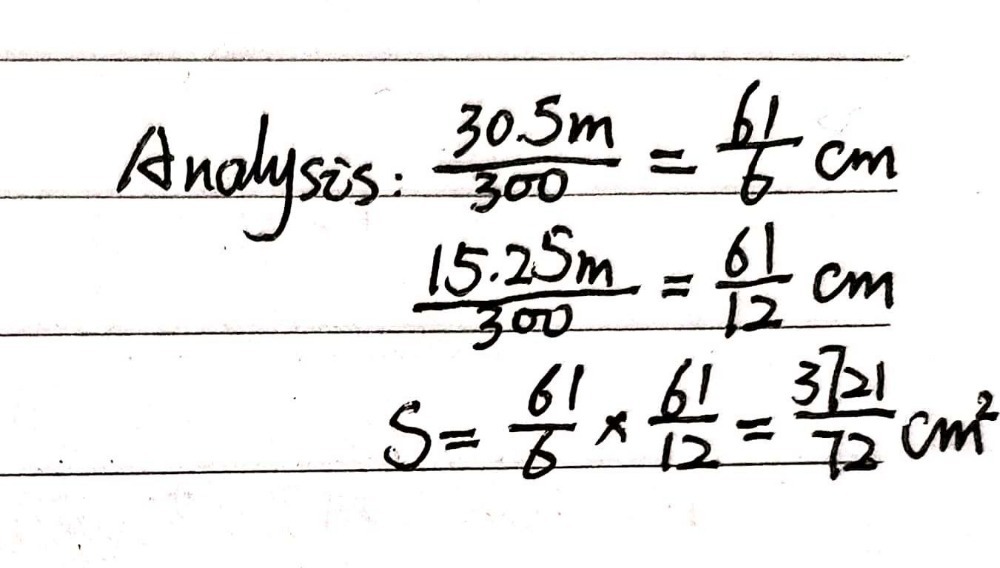 Analysis: 30.5m/300 = 61/6 cm
15.25m/300 = 61/12 cm
S = 61/6 × 61/12 = 3721/72 cm²